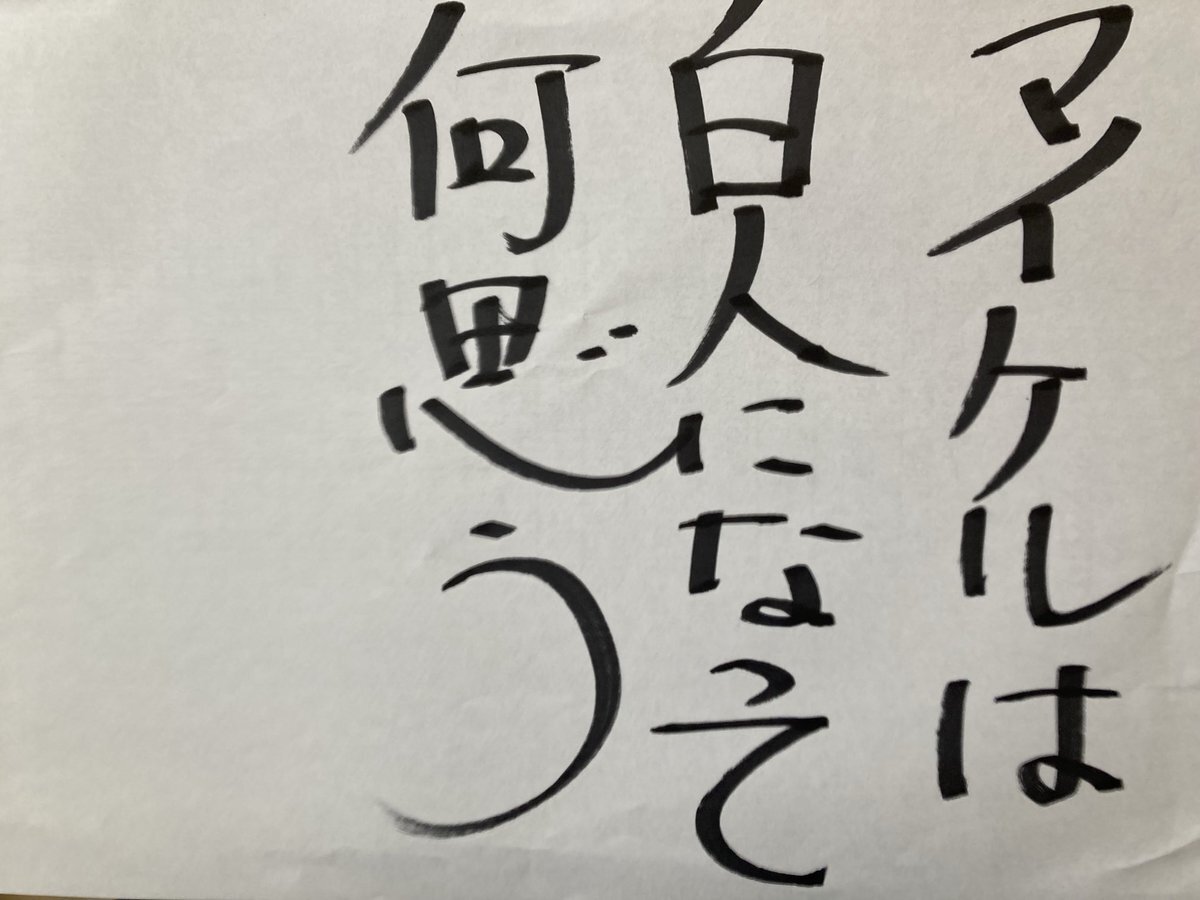 マイケルは
白人になって
何思う